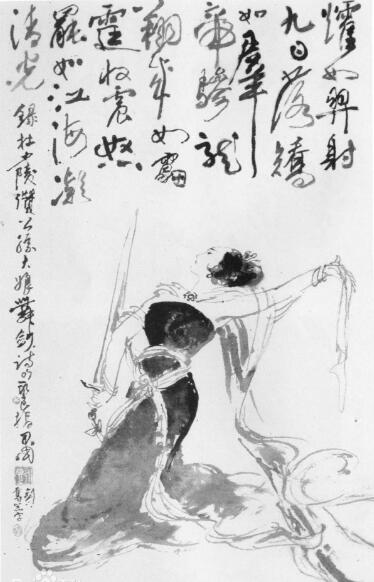 㸌如羿射
九日落矯
如羣
帝驂龍
翔來如雷
霆收震怒
罷如江海凝
清光
錄杜少陵讚公孫大娘舞劍詩句